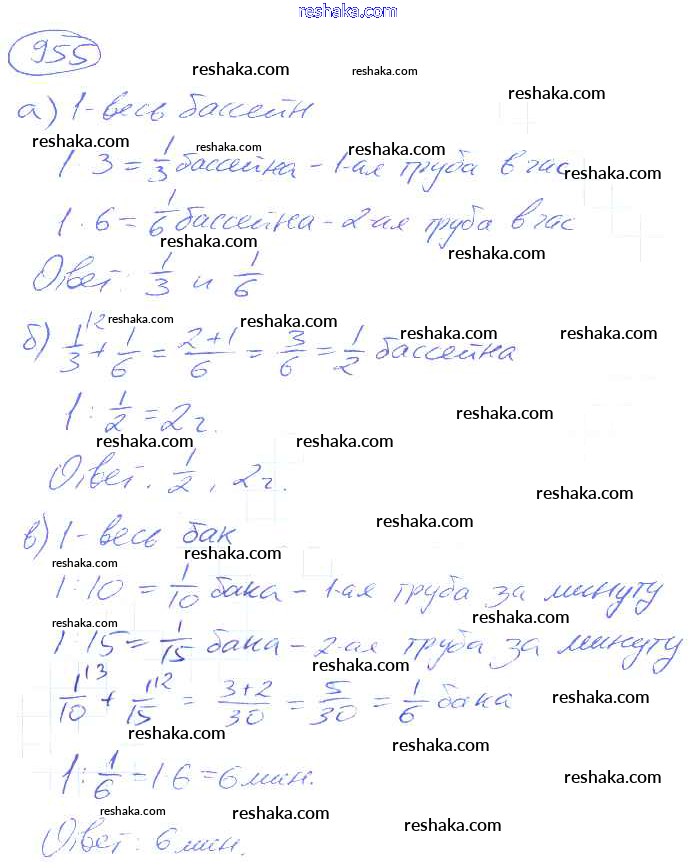 reshaka.com
955
reshaka.com reshaka.com
а) 1-весь бассейн reshaka.com
reshaka.com reshaka.com reshaka.com
1 : 3 = 1/3 бассейна - 1-ая труба в час
reshaka.com
1 : 6 = 1/6 бассейна - 2-ая труба в час
reshaka.com reshaka.com
Ответ: 1/3 и 1/6
reshaka.com reshaka.com reshaka.com reshaka.com
б) 1/3 \2 + 1/6 = 2+1/6 = 3/6 = 1/2 бассейна
1 : 1/2 = 2ч. reshaka.com
reshaka.com reshaka.com
Ответ: 1/2, 2ч.
reshaka.com
reshaka.com
в) 1-весь бак
reshaka.com
reshaka.com
1 : 10 = 1/10 бака - 1-ая труба за минуту
reshaka.com reshaka.com
1 : 15 = 1/15 бака - 2-ая труба за минуту
reshaka.com
1/10 \3 + 1/15 \2 = 3+2/30 = 5/30 = 1/6 бака
reshaka.com
reshaka.com
reshaka.com
1 : 1/6 = 1·6 = 6мин.
reshaka.com
reshaka.com reshaka.com
reshaka.com
Ответ: 6мин.